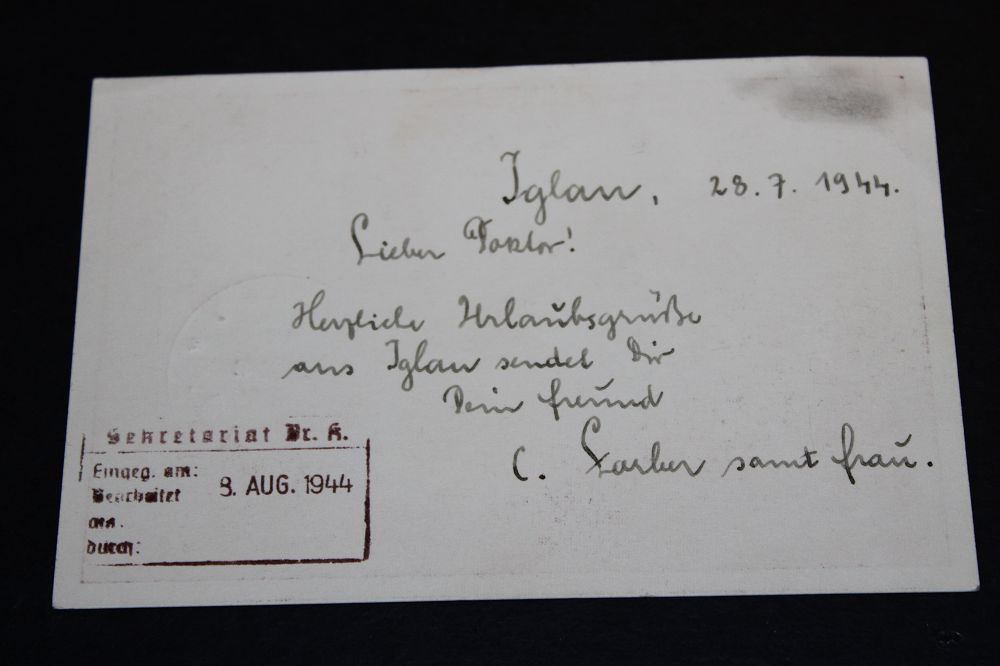 Iglau, 28.7.1944.
Lieber Doktor!
Herzliche Urlaubsgrüße
aus Iglau sendet Dir
Dein Freund
C. Farber samt Frau.
Sekretariat Dr. K.
Eingeg. am:
8. AUG. 1944
Bearbeitet
am.
durch: